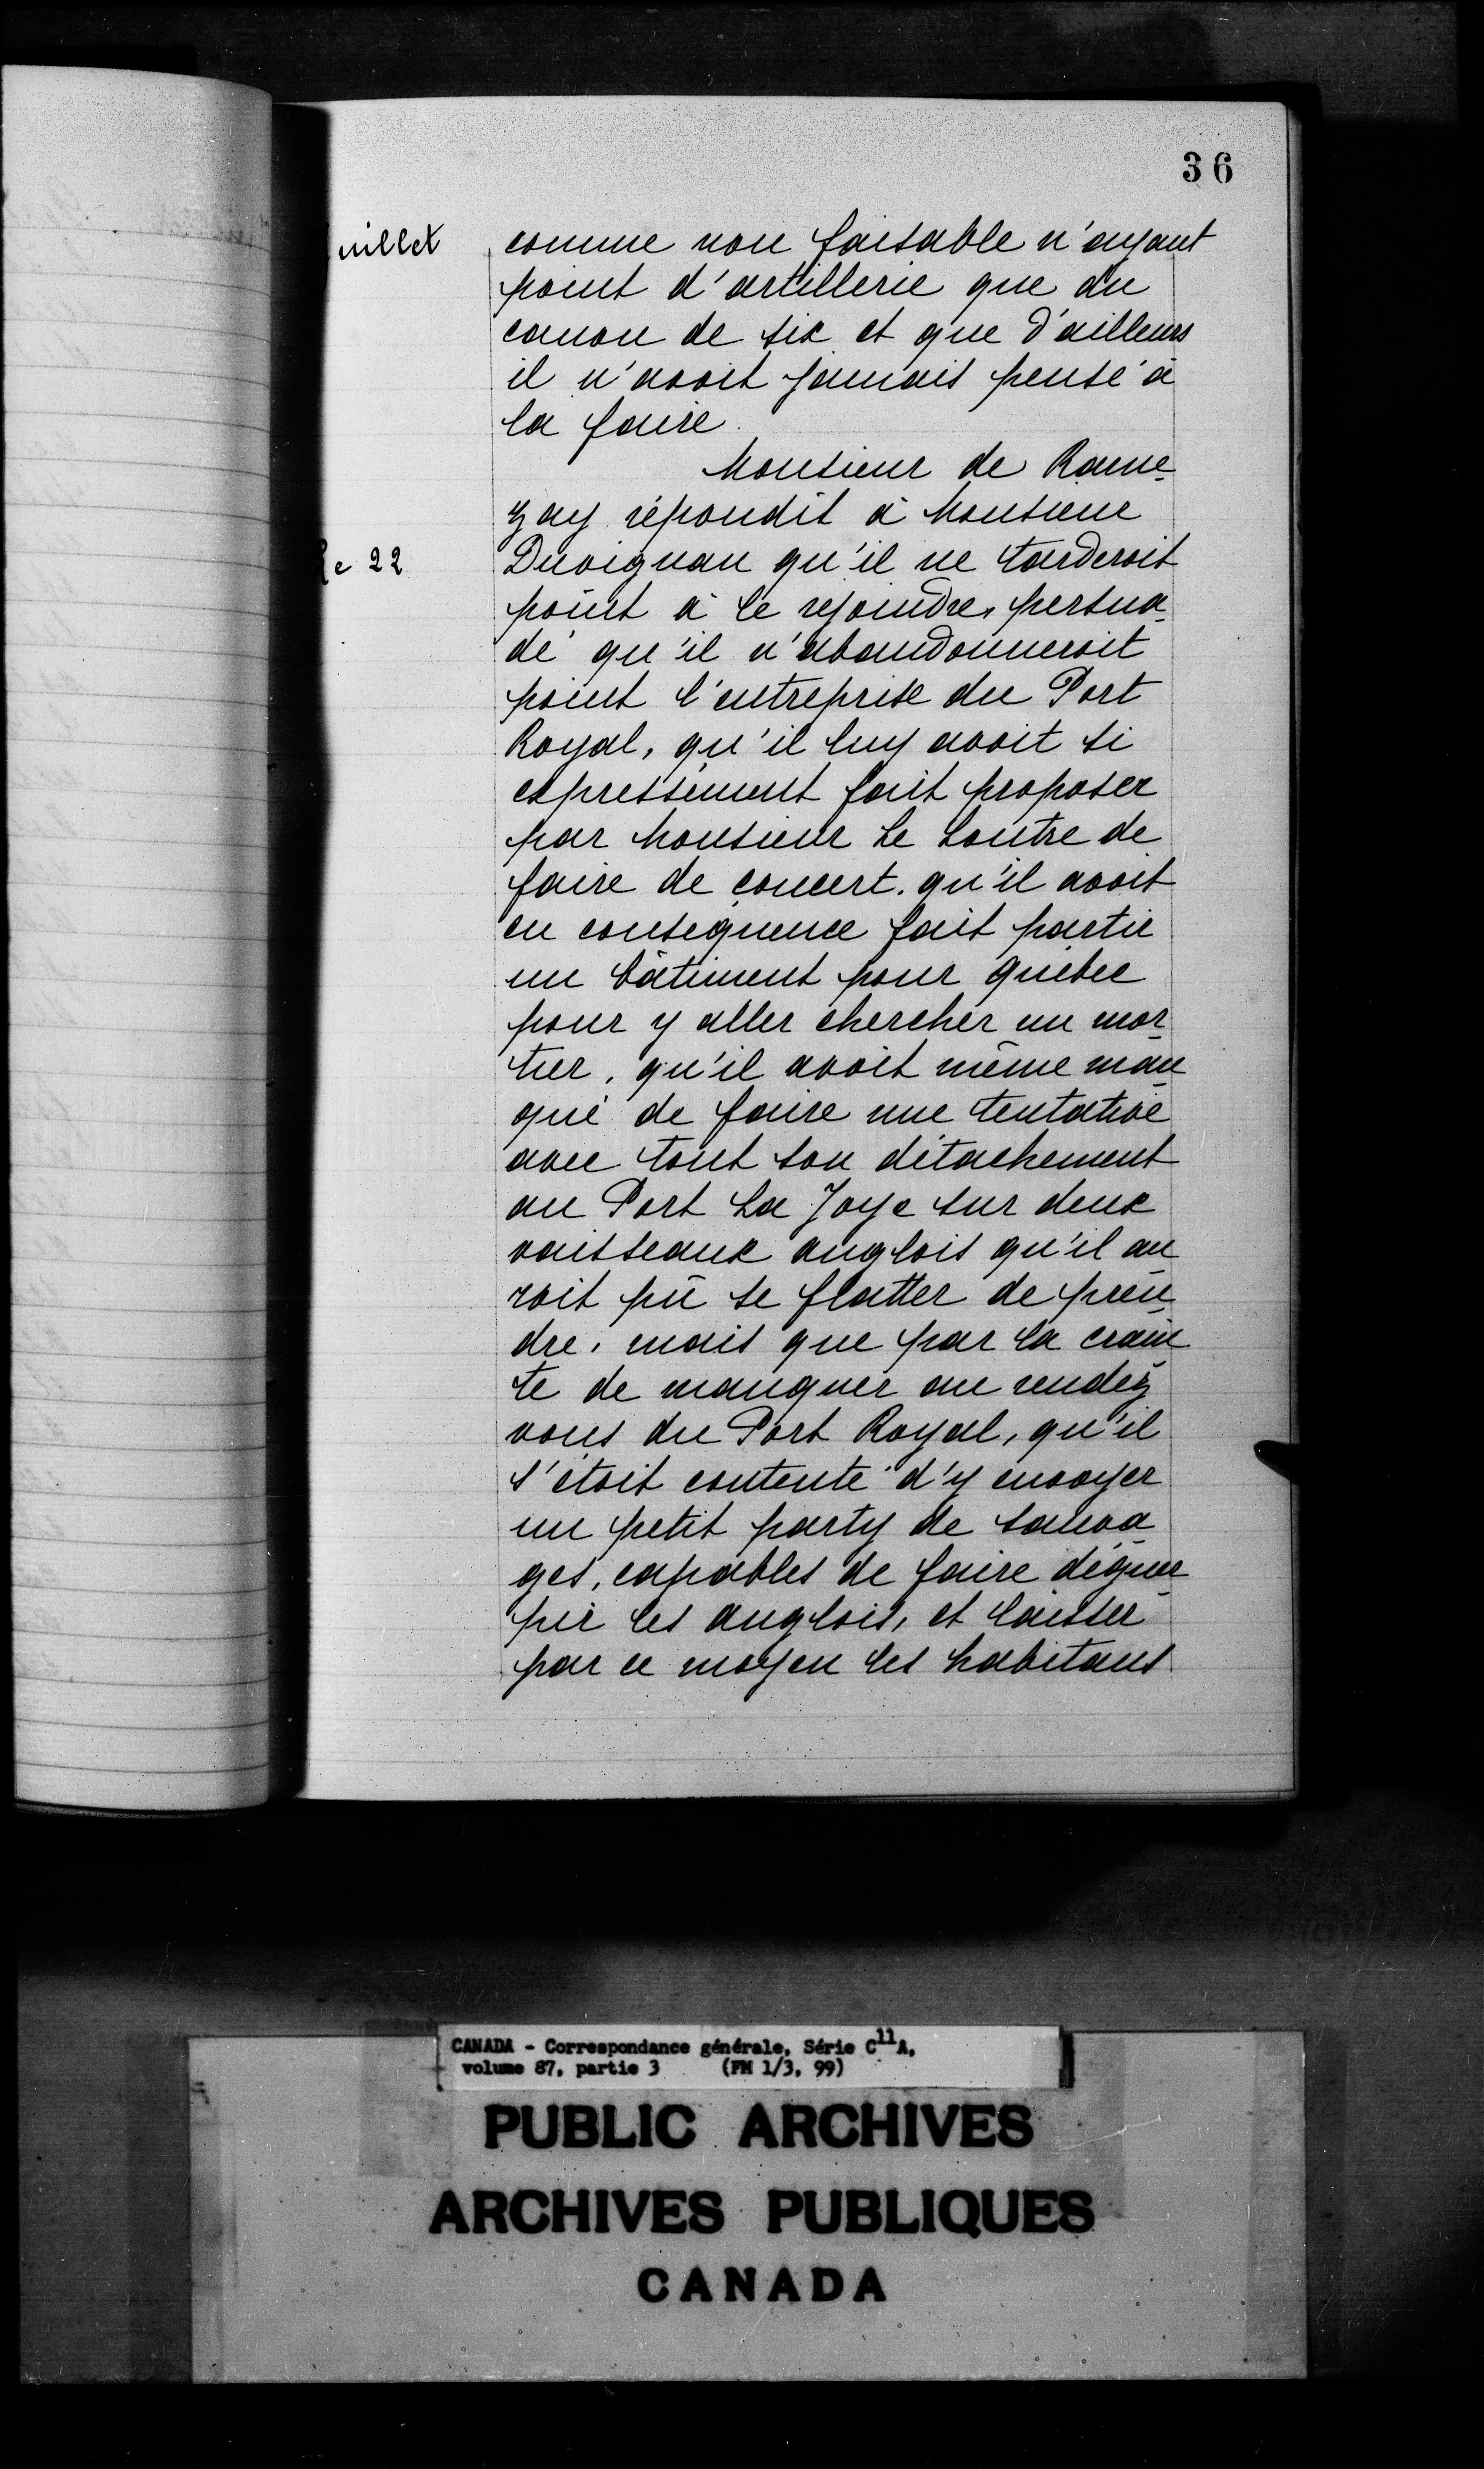 36
uillet
comme non faisable n'ayant
point d'artillerie que du
canon de six et que d'ailleurs
il n'avoit jamais pensé à
la faire.
Monsieur de Rame-
zay répondit à Monsieur
Le 22
Duvignau qu'il ne tarderoit
point à le rejoindre, persua-
dé qu'il n'abandonneroit
point l'entreprise du Port
Royal, qu'il luy avoit si
expressément fait proposer
par Monsieur Le Loutre de
faire de concert, qu'il avoit
en conséquence fait partir
un bâtiment pour Québec
pour y aller chercher un mor-
tier, qu'il avoit même man-
qué de faire une tentative
avec tout son détachement
au Port La Joye sur deux
vaisseaux anglois qu'il au-
roit pû se flatter de pren-
dre, mais que par la crain-
te de manquer au rendez
vous du Port Royal, qu'il
s'étoit contenté d'y envoyer
un petit party de sauva-
ges, capables de faire déguer-
pir les anglois, et laisser
par ce moyen les habitans
CANADA - Correspondance générale, Série C11A,
volume 87, partie 3 (FM 1/3, 99)
PUBLIC ARCHIVES
ARCHIVES PUBLIQUES
CANADA